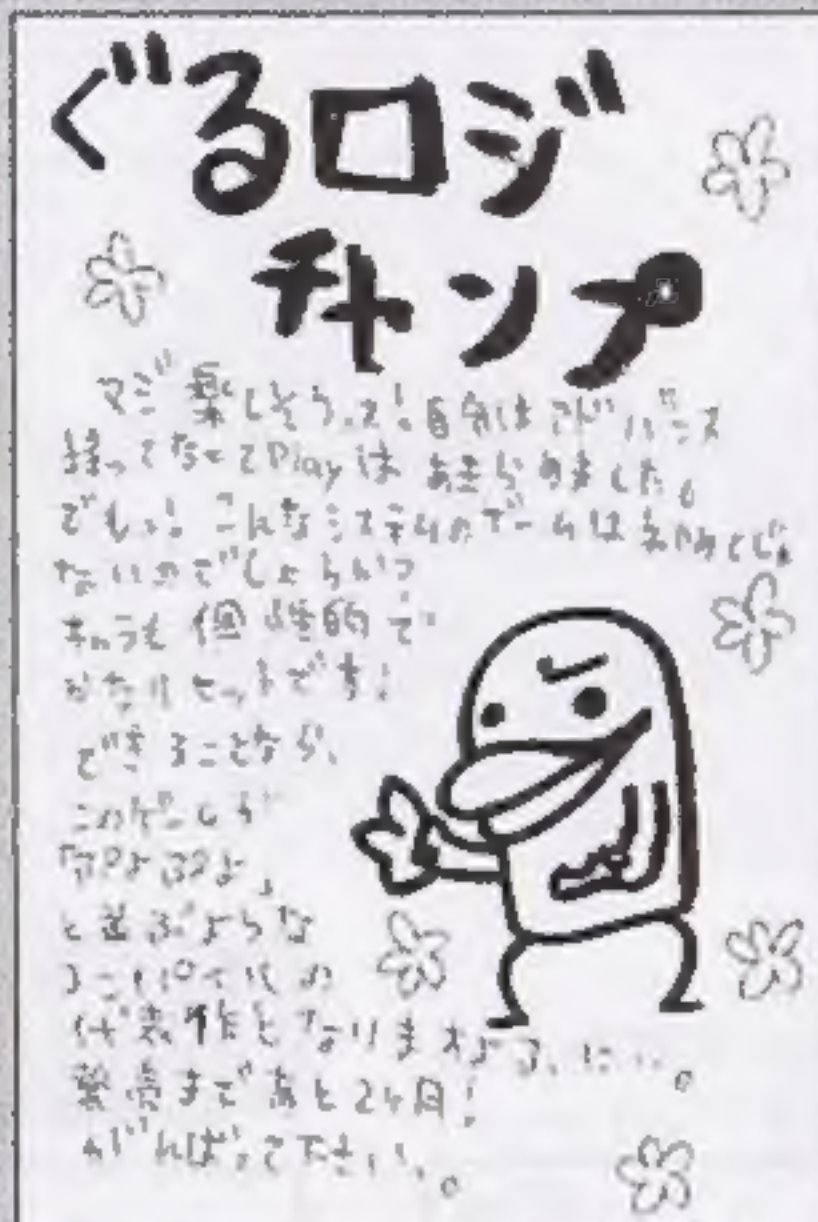 ぐるロジ
チャンプ
マジ楽しそうっス!自分はアドバンス
持ってなくてPlayはあきらめました。
でもっ!こんなシステムのゲームは初めてじゃ
ないのでしょうか?
キャラも個性的で
かなりヒットです!
できることなら、
このゲームが
『ぷよぷよ』
と並ぶような
コンパイルの
代表作となりますように…。
発売まであと24日!
がんばって下さい。